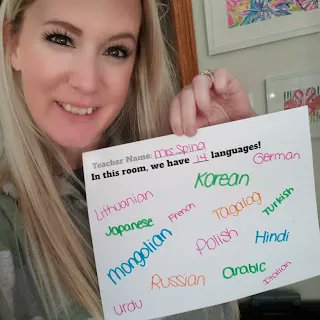 Teacher Name: Mrs. Spina
In this room, we have 14 languages!
German
Korean
Lithuanian
Japanese
French
Tagalog
Turkish
Mongolian
Polish
Hindi
Russian
Arabic
Italian
Urdu